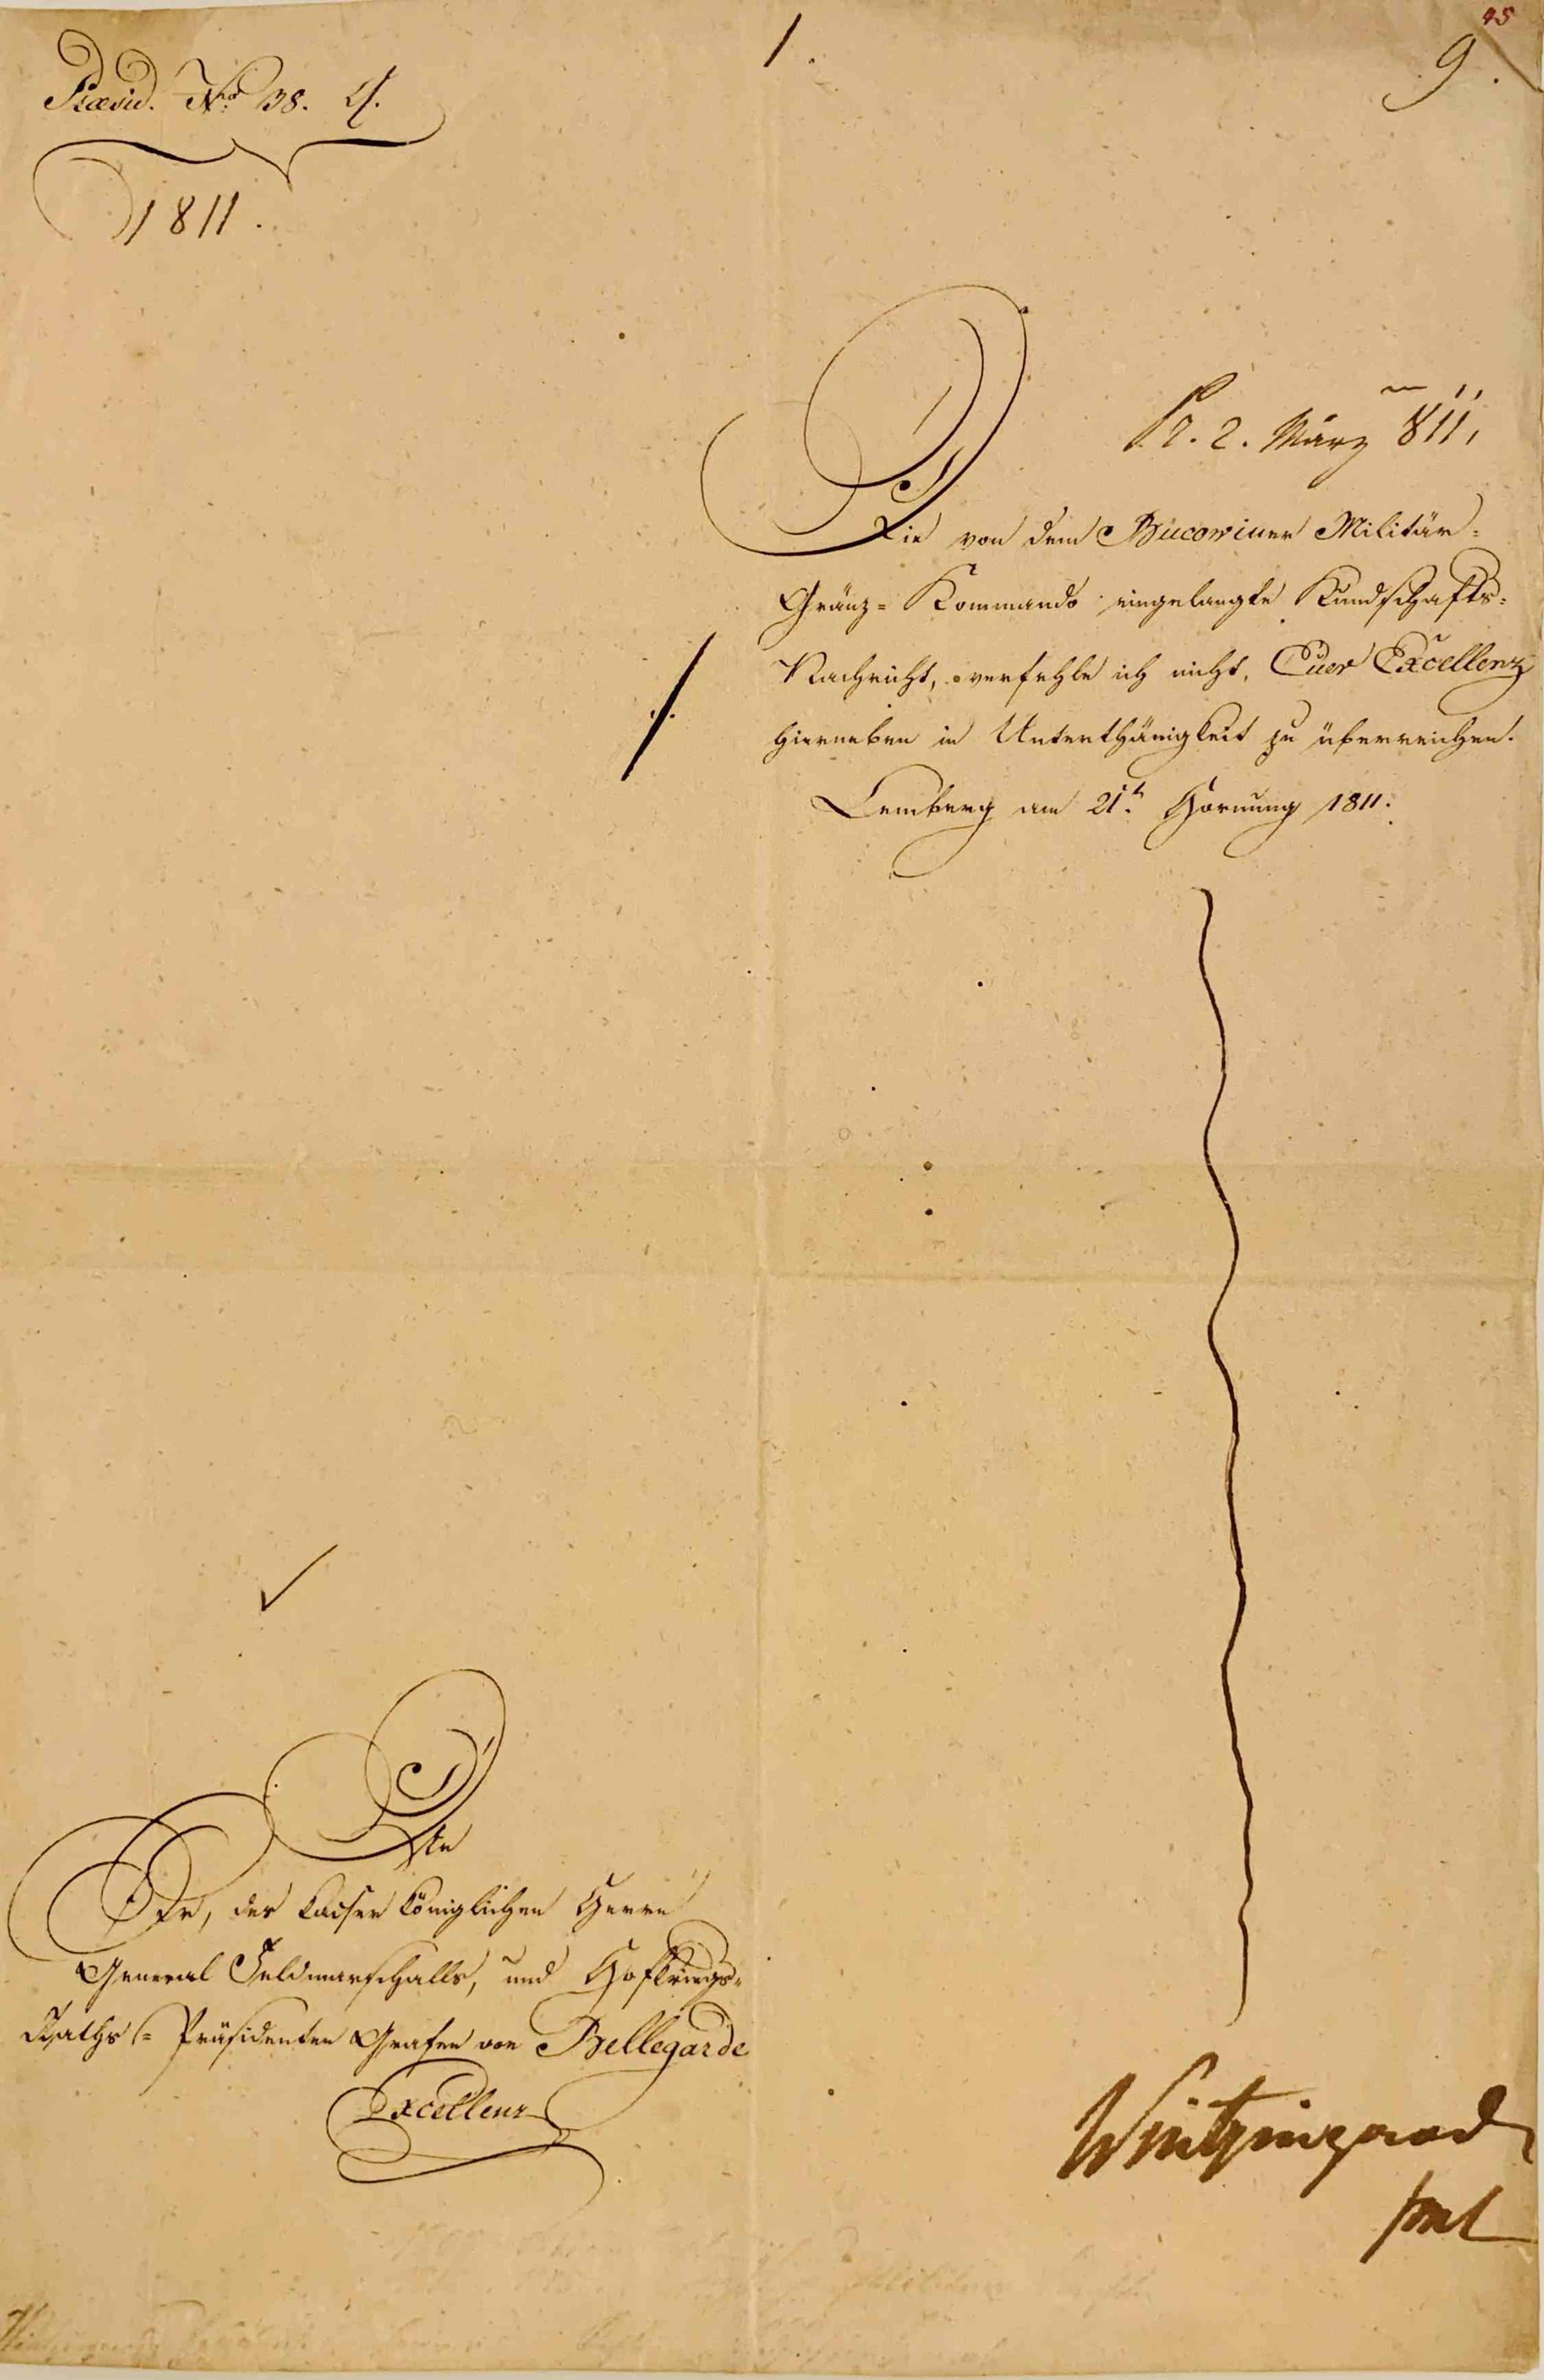 45
1.
9.
Præsid. Nro 38. 4.
1811.
Pr. 2. März 811,
Die von dem Bucowiner Militär-
Gränz- Kommando eingelangte Kundschafts-
Nachricht, verfehle ich nicht, Euer Excellenz
hierneben in Unterthänigkeit zu überreichen.
Lemberg am 21t. Hornung 1811.
An
Sr, des kaiser königlichen Herrn
General Feldmarschalls, und Hofkriegs-
Raths- Präsidenten Grafen von Bellegarde
Excellenz
Wintzingerode
fml